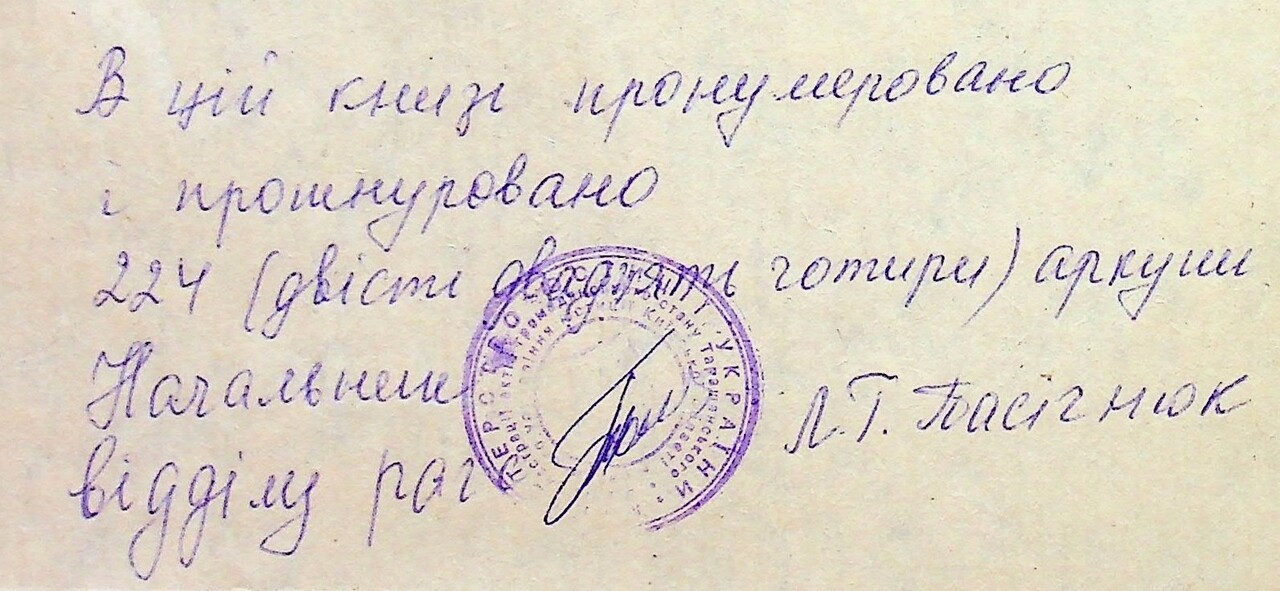 В цій книзі пронумеровано
і прошнуровано
224 (двісті двадцять чотири) аркуши
Начальник
відділу рагс Л.Т. Пасічнюк
УКРАЇНИ
Таращанського